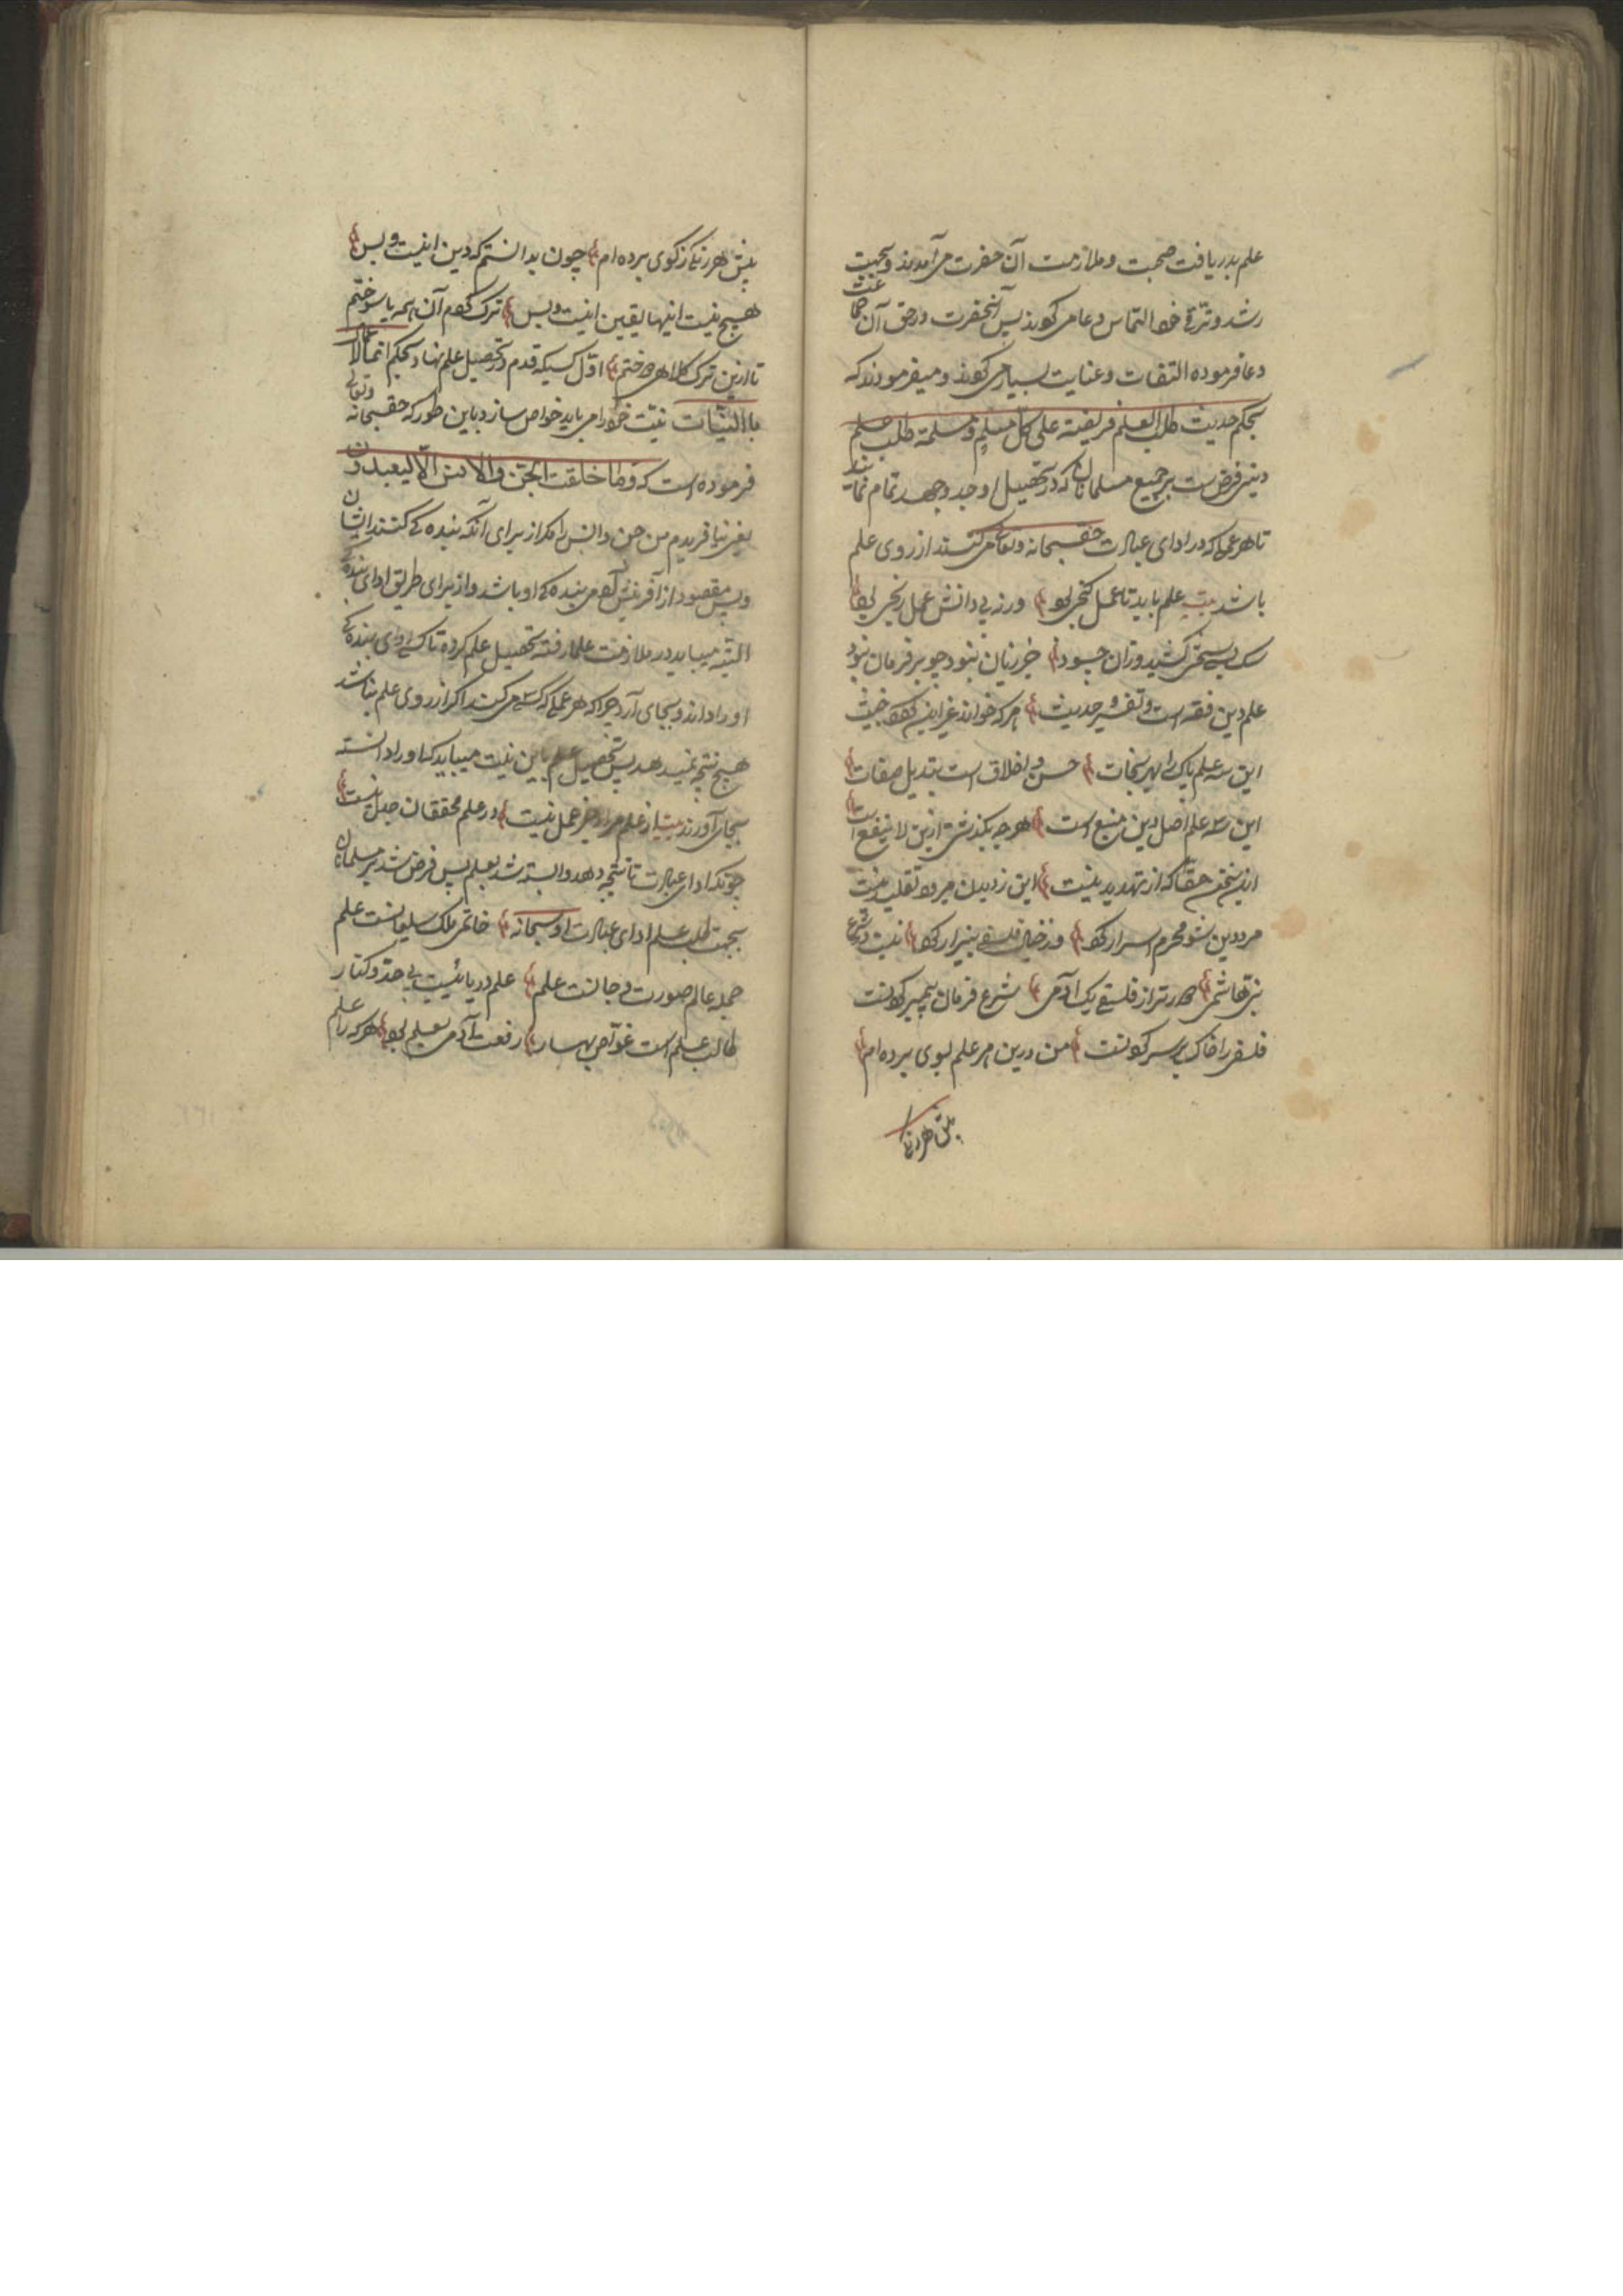 علم بدریافت صحبت و ملازمت آن حضرت می آمدند و بجهت
رشد و ترقی خود التماس دعا می کردند پس آنحضرت در حق آن جماعت
دعا فرموده التفات و عنایت بسیار می کردند و میفرمودند که
بحکم حدیث طلب العلم فریضة علی کل مسلم و مسلمة طلب علم
دینی فرض ست بر جمیع مسلمانان که در تحصیل او جد و جهد تمام نمایند
تا هر عملی که در ادای عبادت حق سبحانه و تعالی می کنند از روی علم
باشد بیت علم باید تا عمل گنجی بود ورنه بی دانش عمل رنجی بود
سنگ بی سختی کشیدن زان چه سود جز زیان نبود چو بر فرمان نبود
علم دین فقه است و تفسیر و حدیث هر که خواند غیر این گردد خبیث
این سه علم پاک را بهر نجات حسن اخلاق است و تبدیل صفات
این سه علم اصل دین و منبع است هر چه بگذشتی ازین لا ینفع است
این سخن حقا که از تهدید نیست این ز دیدن میرود تقلید نیست
مرد دین شو محرم اسرار گرد وز خیال فلسفی بیزار گرد نیست در شرع
نبی هاشمی دورتر از فلسفی یک آدمی شرع فرمان پیمبر کردنست
فلسفی را خاک بر سر کردنست من درین هر علم بوی برده ام
پیش هر رنگی
پیش هر رنگی ز کوی برده ام چون بدانستم که دین اینست و بس
هیچ نیست اینها یقین اینست و بس ترک کردم آن همه یا سوختم
تا ازین ترک کلاهی دوختم اول کسیکه قدم در تحصیل علم نهاد بحکم انما الاعمال
بالنیات نیت خود را می باید خالص سازد باین طور که حق سبحانه و تعالی
فرموده است که وما خلقت الجن والانس الا لیعبدون
یعنی نیافریدم من جن و انس را مگر از برای آنکه بنده کی کنند ایشان
و پس مقصود از آفرینش آدمی بنده کی او باشد و از برای طریق ادای بنده کی
البته میباید در ملازمت علما رفته تحصیل علم کرده تا که ادای بنده کی
او را داند و بجای آرد چرا که هر عملی که کسی می کند اگر از روی علم نباشد
هیچ نتیجه نمیدهد پس تحصیل علم باین نیت میباید که او را دانسته
بجای آورند بیت از علم مراد جز عمل نیست در علم محققان جدل نیست
چونکه ادای عبادت تا نتیجه دهد وابسته شد بعلم پس فرض شد بر مسلمانان
بجهت طلب علم ادای عبادت او سبحانه خاتم ملک سلیمانست علم
جمله عالم صورت و جانست علم علم دریائیست بی حد و کنار
طالب علم است غواص بحار رفعت آدمی بعلم بود هر که را علم